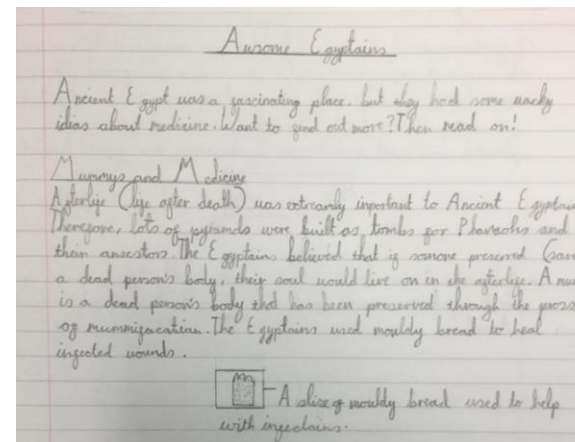 Ausome Egyptains
Ancient Egypt was a fascinating place. but they had some wacky
idias about medicine. Want to find out more? Then read on!
Mummys and Medicine
Afterlife (life after death) was extreamly inportant to Ancient Egyptain
Therefore, lots of were built as tombs for Pharaohs and
their ancestors. The Egyptains believed that if somone preserved (sav
a dead person's body, their soul would live on in the afterlife. A mu
is a dead person's body that has been preserved through the
of mummifacation. The Egyptains used mouldy bread to heal
infected wounds.
A slise of mouldy bread used to help
with infectains.